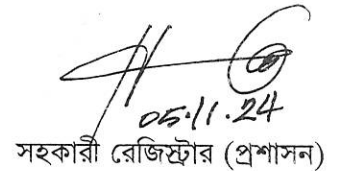 05.11.24
সহকারী রেজিস্ট্রার (প্রশাসন)